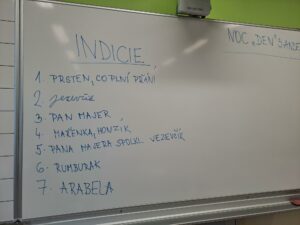 INDICIE
NOC „DEN"S AND
1. PRSTEN, CO PLNÍ PŘÁNÍ
2. jezevčík
3 PAN MAJER
4. MAŘENKA, HONZÍK
5 PANA MAJERA SPOLKL VEZEVČÍK
6. RUMBURAK
7. ARABELA